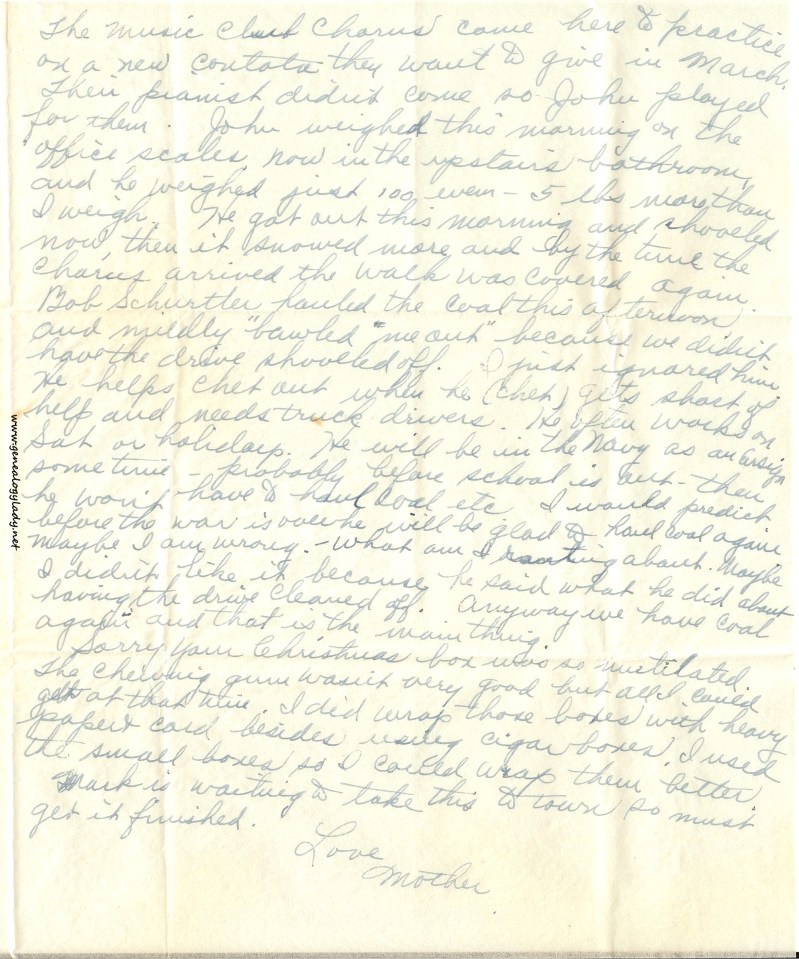 The Music Club Chorus came here to practice
on a new contata they want to give in March.
Their pianist didn't come so John played
for them. John weighed this morning on the
office scales, now in the upstairs bathroom,
and he weighed just 100 even - 5 lbs more than
I weigh. He got out this morning and shoveled
now, then it snowed more and by the time the
chorus arrived the walk was covered again.
Bob Schurtler hauled the coal this afternoon
and mildly "bawled "me out" because we didn't
have the drive shovelled off. I just ignored him.
He helps Chet out when he (Chet) gets short of
help and needs truck drivers. He often works on
Sat or holidays. He will be in the Navy as an ensign
some time - probably before school is out - then
he won't have to haul coal etc I would predict
before the war is over he will be glad to haul coal again
Maybe I am wrong. - What am I ranting about. Maybe
I didn't like it because he said what he did about
having the drive cleaned off. Anyway we have coal
again and that is the main thing.
Sorry your Christmas box was so mutilated.
The chewing gum wasn't very good but all I could
get at that time. I did wrap those boxes with heavy
paper & card besides using cigar boxes. I used
the small boxes so I could wrap them better
Mark is waiting to take this to town so must
get it finished.
Love
Mother
www.genealogylady.net